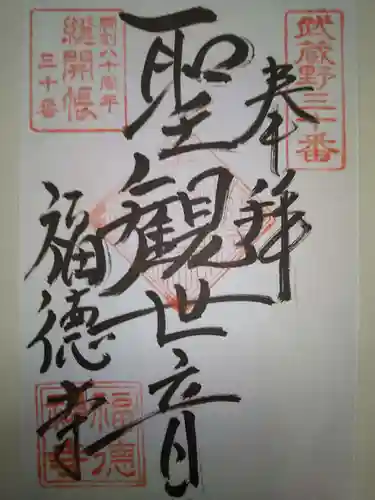 武蔵野三十番
奉拝
聖観世音
福徳寺
開創八十周年
総開帳
三十番
福徳